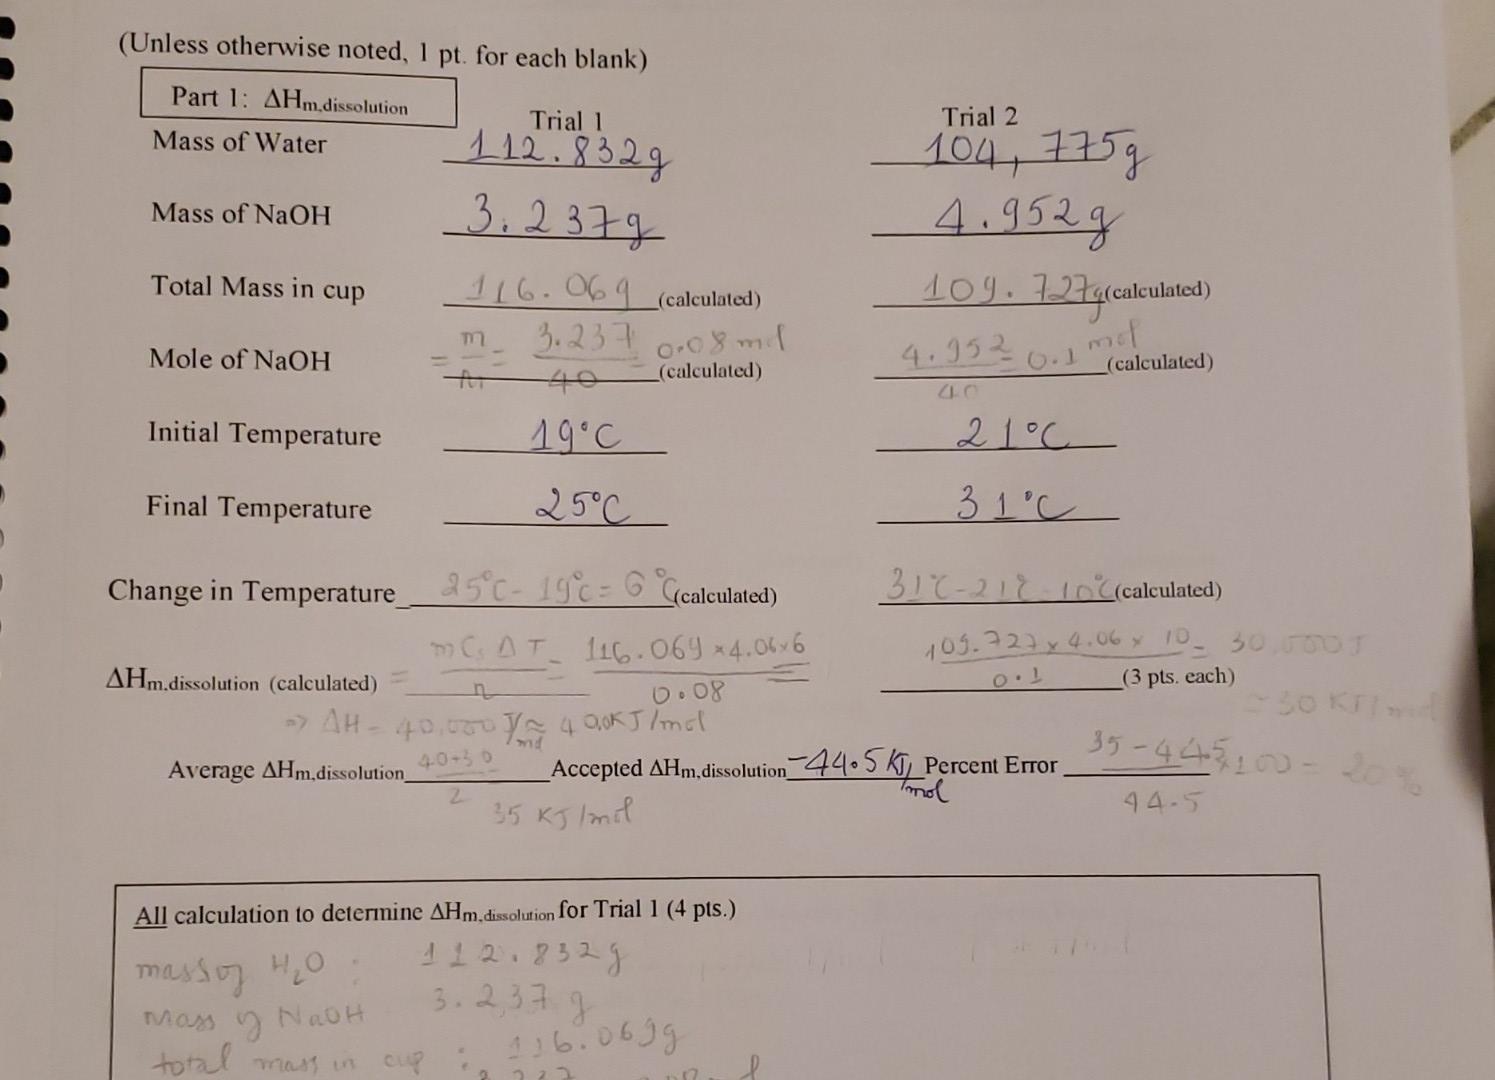 (Unless otherwise noted, 1 pt. for each blank)
Part 1: ΔHm,dissolution
Trial 1 Trial 2
Mass of Water 112.832g 104,775g
Mass of NaOH 3.237g 4.952g
Total Mass in cup 116.069 (calculated) 109.727g (calculated)
Mole of NaOH = m/m = 3.237/40 = 0.08 mol (calculated) 4.952/40 = 0.1 mol (calculated)
Initial Temperature 19°C 21°C
Final Temperature 25°C 31°C
Change in Temperature 25°C - 19°C = 6°C (calculated) 31°C - 21°C = 10°C (calculated)
ΔHm,dissolution (calculated) = mCsΔT/n = 116.069 × 4.06 × 6/0.08 = 109.727 × 4.06 × 10/0.1 = 30,000J (3 pts. each)
⇒ ΔH = 40,000 J/mol ≈ 40.0KJ/mol ≈ 30 KJ/mol
Average ΔHm,dissolution 40+30/2 Accepted ΔHm,dissolution -44.5 KJ/mol Percent Error 35-44.5/44.5 × 100 = 20%
35 KJ/mol
All calculation to determine ΔHm,dissolution for Trial 1 (4 pts.)
mass of H2O : 112.832g
mass of NaOH 3.237 g
total mass in cup : 116.069g